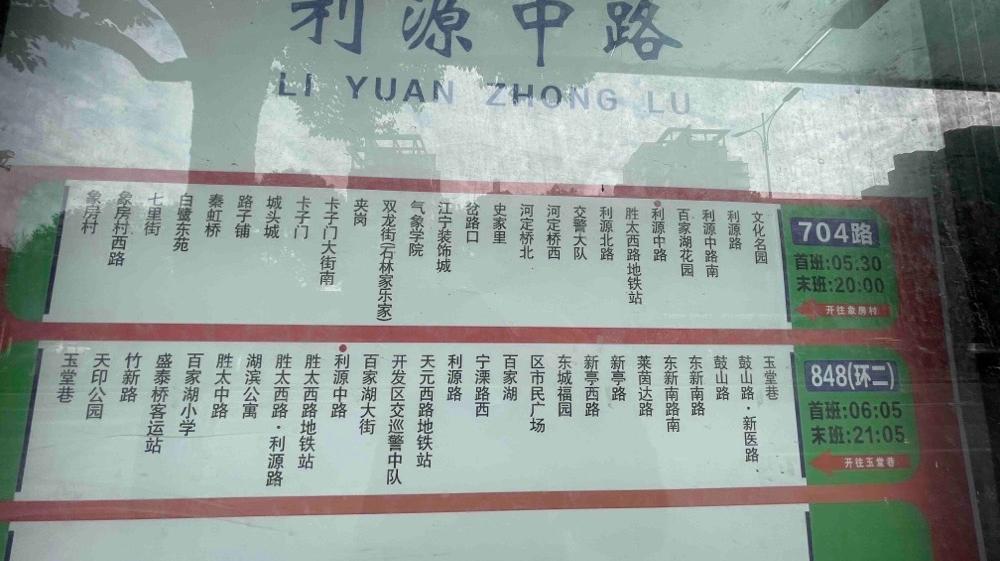 利源中路
LI YUAN ZHONG LU
象房村
象房村西路
七里街
白鹭东苑
秦虹桥
路子铺
城头城
卡子门
卡子门大街南
夹岗
双龙街(石林家乐家)
气象学院
江宁装饰城
岔路口
史家里
河定桥北
河定桥西
交警大队
利源北路
胜太西路地铁站
利源中路
百家湖花园
利源中路南
利源路
文化名园
704路
首班:05:30
末班:20:00
开往象房村
玉堂巷
天印公园
竹新路
盛泰桥客运站
百家湖小学
胜太中路
湖滨公寓
胜太西路·利源路
胜太西路地铁站
利源中路
百家湖大街
开发区交巡警中队
天元西路地铁站
利源路
宁溧路西
百家湖
区市民广场
东城福园
新亭西路
新亭路
莱茵达路
东新南路南
东新南路
鼓山路
鼓山路·新医路·
玉堂巷
848(环二)
首班:06:05
末班:21:05
开往玉堂巷